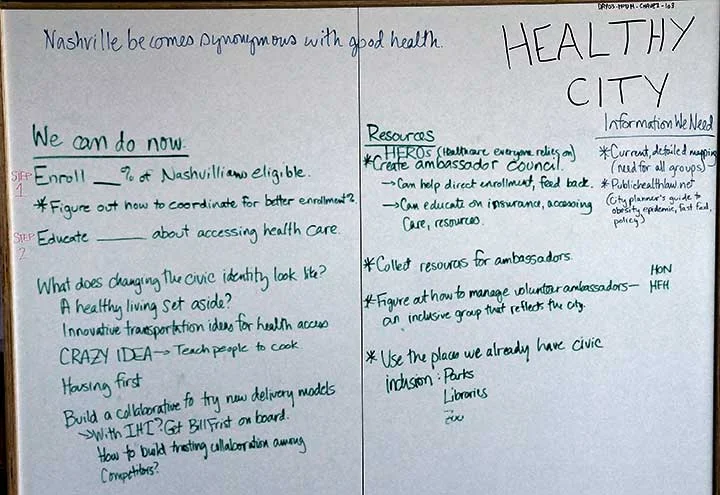 Nashville becomes synonymous with good health.
HEALTHY
CITY
We can do now.
STEP 1
Enroll ___% of Nashvillians eligible.
*Figure out how to coordinate for better enrollment?
STEP 2
Educate ______ about accessing health care.
What does changing the civic identity look like?
A healthy living set aside?
Innovative transportation ideas for health access
CRAZY IDEA → Teach people to cook.
Housing first
Build a collaborative to try new delivery models
→ With IHI? Get Bill Frist on board.
How to build trusting collaboration among
Competitors?
Resources
HEROs (Healthcare everyone relies on)
*Create ambassador council.
→ Can help direct enrollment, feed back.
→ Can educate on insurance, accessing
Care, resources.
*Collect resources for ambassadors.
*Figure out how to manage volunteer ambassadors—
an inclusive group that reflects the city.
HON
HFH
* Use the places we already have civic
inclusion: Parks
Libraries
Zoo
Information We Need
*Current, detailed mapping
(need for all groups)
*Publichealthlaw.net
(City planner's guide to
obesity epidemic, fast food,
policy)